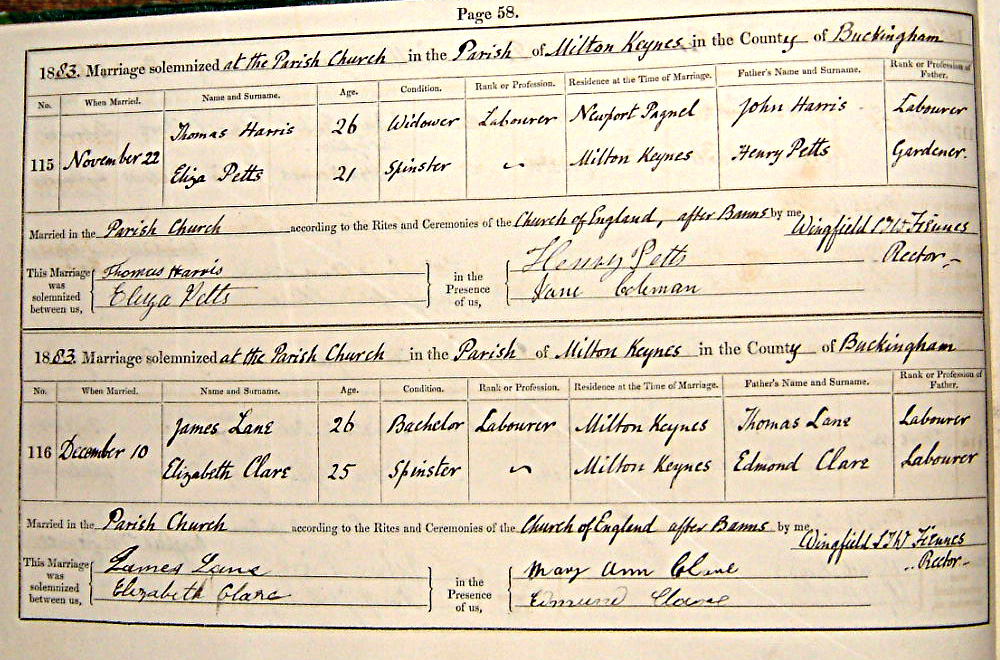 Page 58.
1883. Marriage solemnized at the Parish Church in the Parish of Milton Keynes in the County of Buckingham
No. When Married. Name and Surname. Age. Condition. Rank or Profession. Residence at the Time of Marriage. Father's Name and Surname. Rank or Profession of Father.
115 November 22 Thomas Harris 26 Widower Labourer Newport Pagnel John Harris Labourer
Eliza Petts 21 Spinster ~ Milton Keynes Henry Petts Gardener.
Married in the Parish Church according to the Rites and Ceremonies of the Church of England, after Banns by me, Wingfield Fiennes
Rector
This Marriage was solemnized between us, Thomas Harris in the Presence of us, Henry Petts
Eliza Petts Jane Coleman
1883. Marriage solemnized at the Parish Church in the Parish of Milton Keynes in the County of Buckingham
No. When Married. Name and Surname. Age. Condition. Rank or Profession. Residence at the Time of Marriage. Father's Name and Surname. Rank or Profession of Father.
116 December 10 James Lane 26 Bachelor Labourer Milton Keynes Thomas Lane Labourer
Elizabeth Clare 25 Spinster ~ Milton Keynes Edmond Clare Labourer
Married in the Parish Church according to the Rites and Ceremonies of the Church of England after Banns by me, Wingfield Fiennes
Rector
This Marriage was solemnized between us, James Lane in the Presence of us, Mary Ann Clare
Elizabeth Clare Edmund Clare